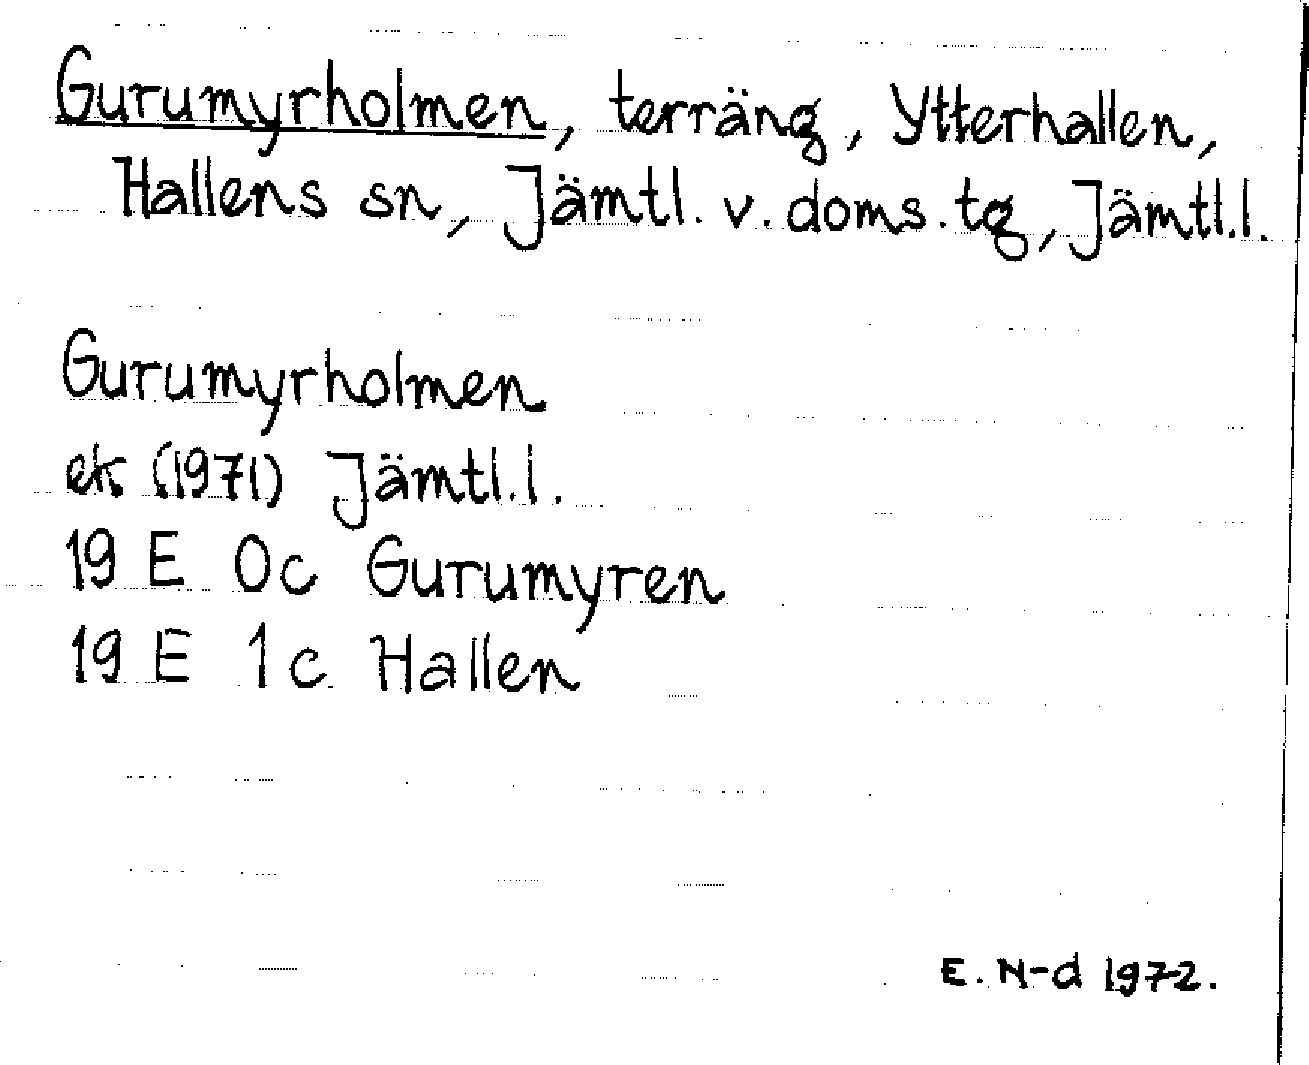 Gurumyrholmen, terräng, Ytterhallen,
Hallens sn, Jämtl. v. doms. tg, Jämtl.l.
Gurumyrholmen
ek (1971) Jämtl.l.
19 E 0c Gurumyren
19 E 1c Hallen
E. N-d 1972.